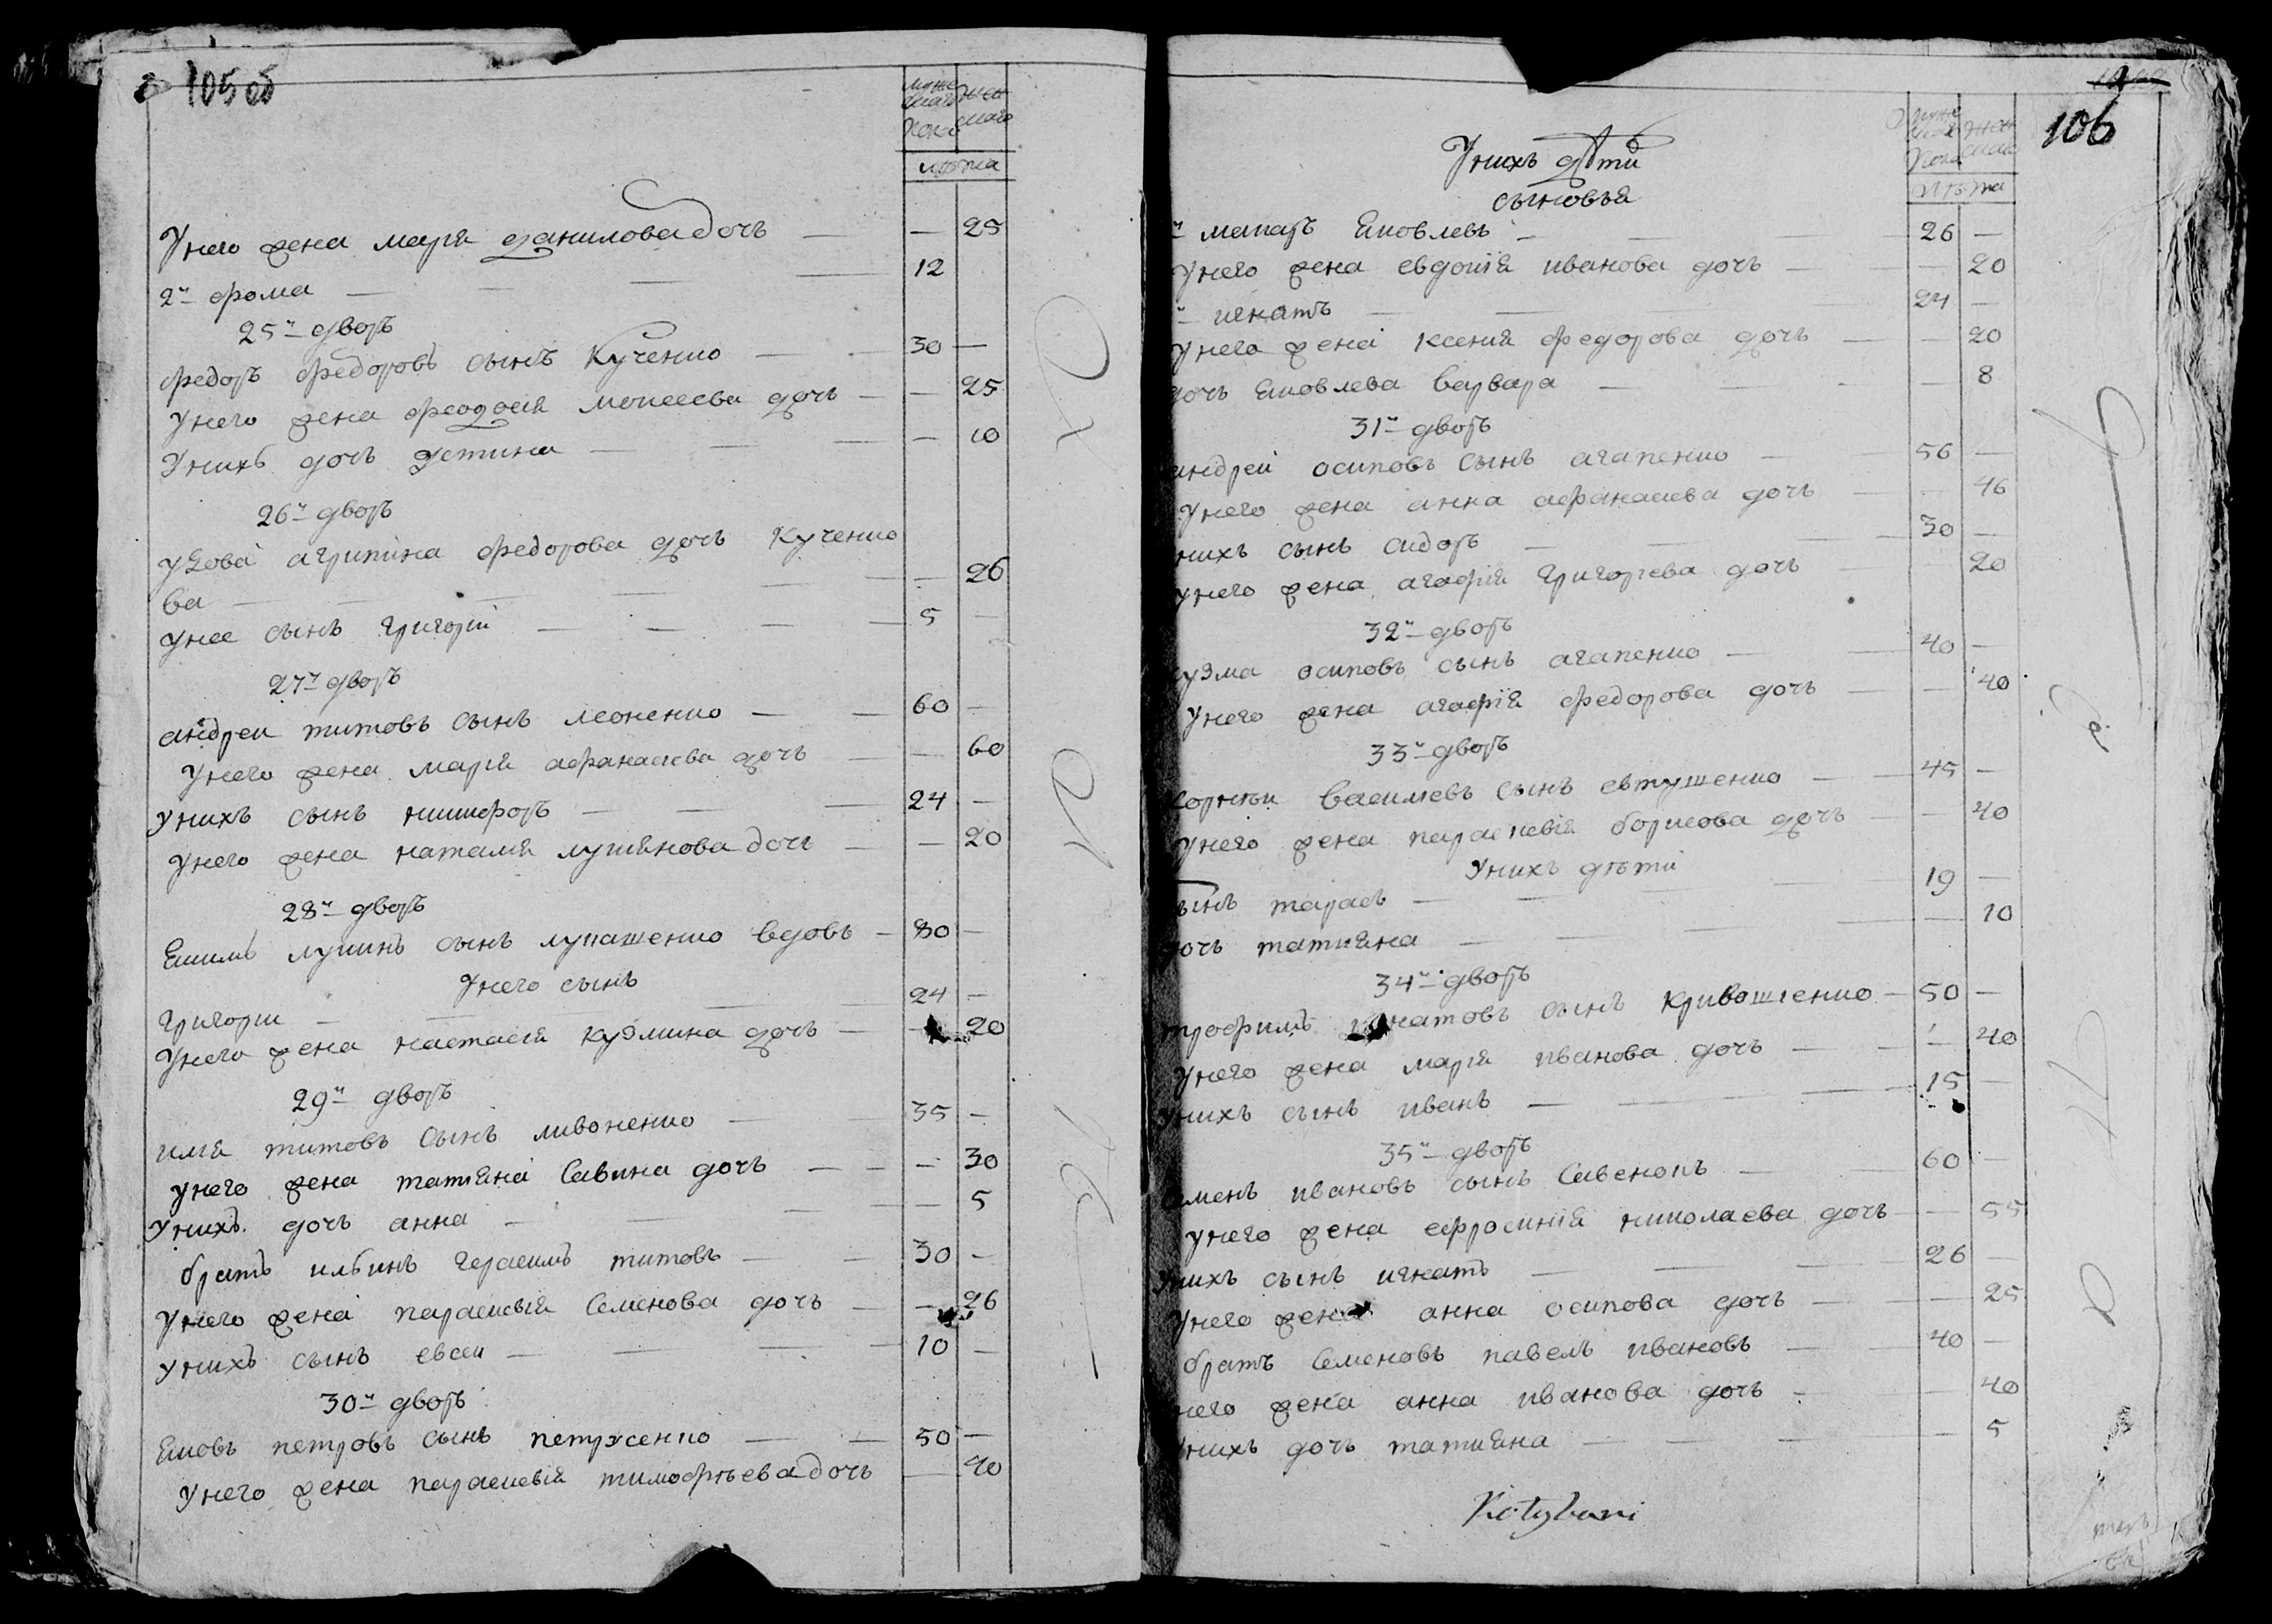 105 об
муже
скаго
пола
жен
скаго
лѣта
Унего жена марія данилова дочь — — 25
2й фома — 12
25й дворъ
федоръ федоровъ сынъ Кученко — 30 —
Унего жена феодосія моисеева дочь — — 25
Унихъ дочь Устина — — 10
26й дворъ
Удова агрипина федорова дочь Кученко
ва — — 26
Унее сынъ григорій — 5 —
27й дворъ
андреи титовъ сынъ леоненко — 60 —
Унего жена марія афанасиева дочь — — 60
Унихъ сынъ никифоръ — 24 —
Унего жена наталия лукиянова дочь — — 20
28й дворъ
Екимъ лукинъ сынъ лукашенко вдовъ — 80 —
Унего сынъ
григории — 24 —
Унего жена настасия кузмина дочь — — 20
29й дворъ
илия титовъ сынъ ливоненко — 35 —
Унего жена татияна савина дочь — — 30
Унихъ дочь анна — — 5
братъ илиинъ герасимъ титовъ — 30 —
Унего жена параскевия семенова дочь — — 26
Унихъ сынъ евсеи — 10 —
30й дворъ
Яковъ петровъ сынъ петрусенко — 50 —
Унего жена параскевия тимофѣева дочь — 40
106
муже
скаго
пола
жен
скаго
лѣта
Унихъ дѣти
сыновья
й макаръ Яковлевъ — 26 —
Унего жена евдокія иванова дочь — — 20
й игнатъ — 24 —
Унего жена ксения федорова дочь — — 20
дочь Яковлева варвара — — 8
31й дворъ
андреи осиповъ сынъ агапенко — 56 —
Унего жена анна афанасиева дочь — — 46
нихъ сынъ сидоръ — 30 —
унего жена агафія григориева дочь — 20
32й дворъ
кузма осиповъ сынъ агапенко — 40 —
Унего жена агафія федорова дочь — — 40
33й дворъ
Корнѣи василиевъ сынъ евтушенко — 45 —
Унего жена параскевия борисова дочь — — 40
Унихъ дѣти
сынъ тарасъ — 19 —
дочь татияна — — 10
34й дворъ
трофимъ игнатовъ сынъ кривошиенко — 50 —
Унего жена марія иванова дочь — — 40
Унихъ сынъ иванъ — 15 —
35й дворъ
семенъ ивановъ сынъ савенокъ — 60 —
унего жена ефросиния николаева дочь — — 55
Унихъ сынъ игнатъ — 26 —
Унего жена анна осипова дочь — — 25
братъ семеновъ павелъ ивановъ — 40 —
него жена анна иванова дочь — — 40
Унихъ дочь татияна — — 5